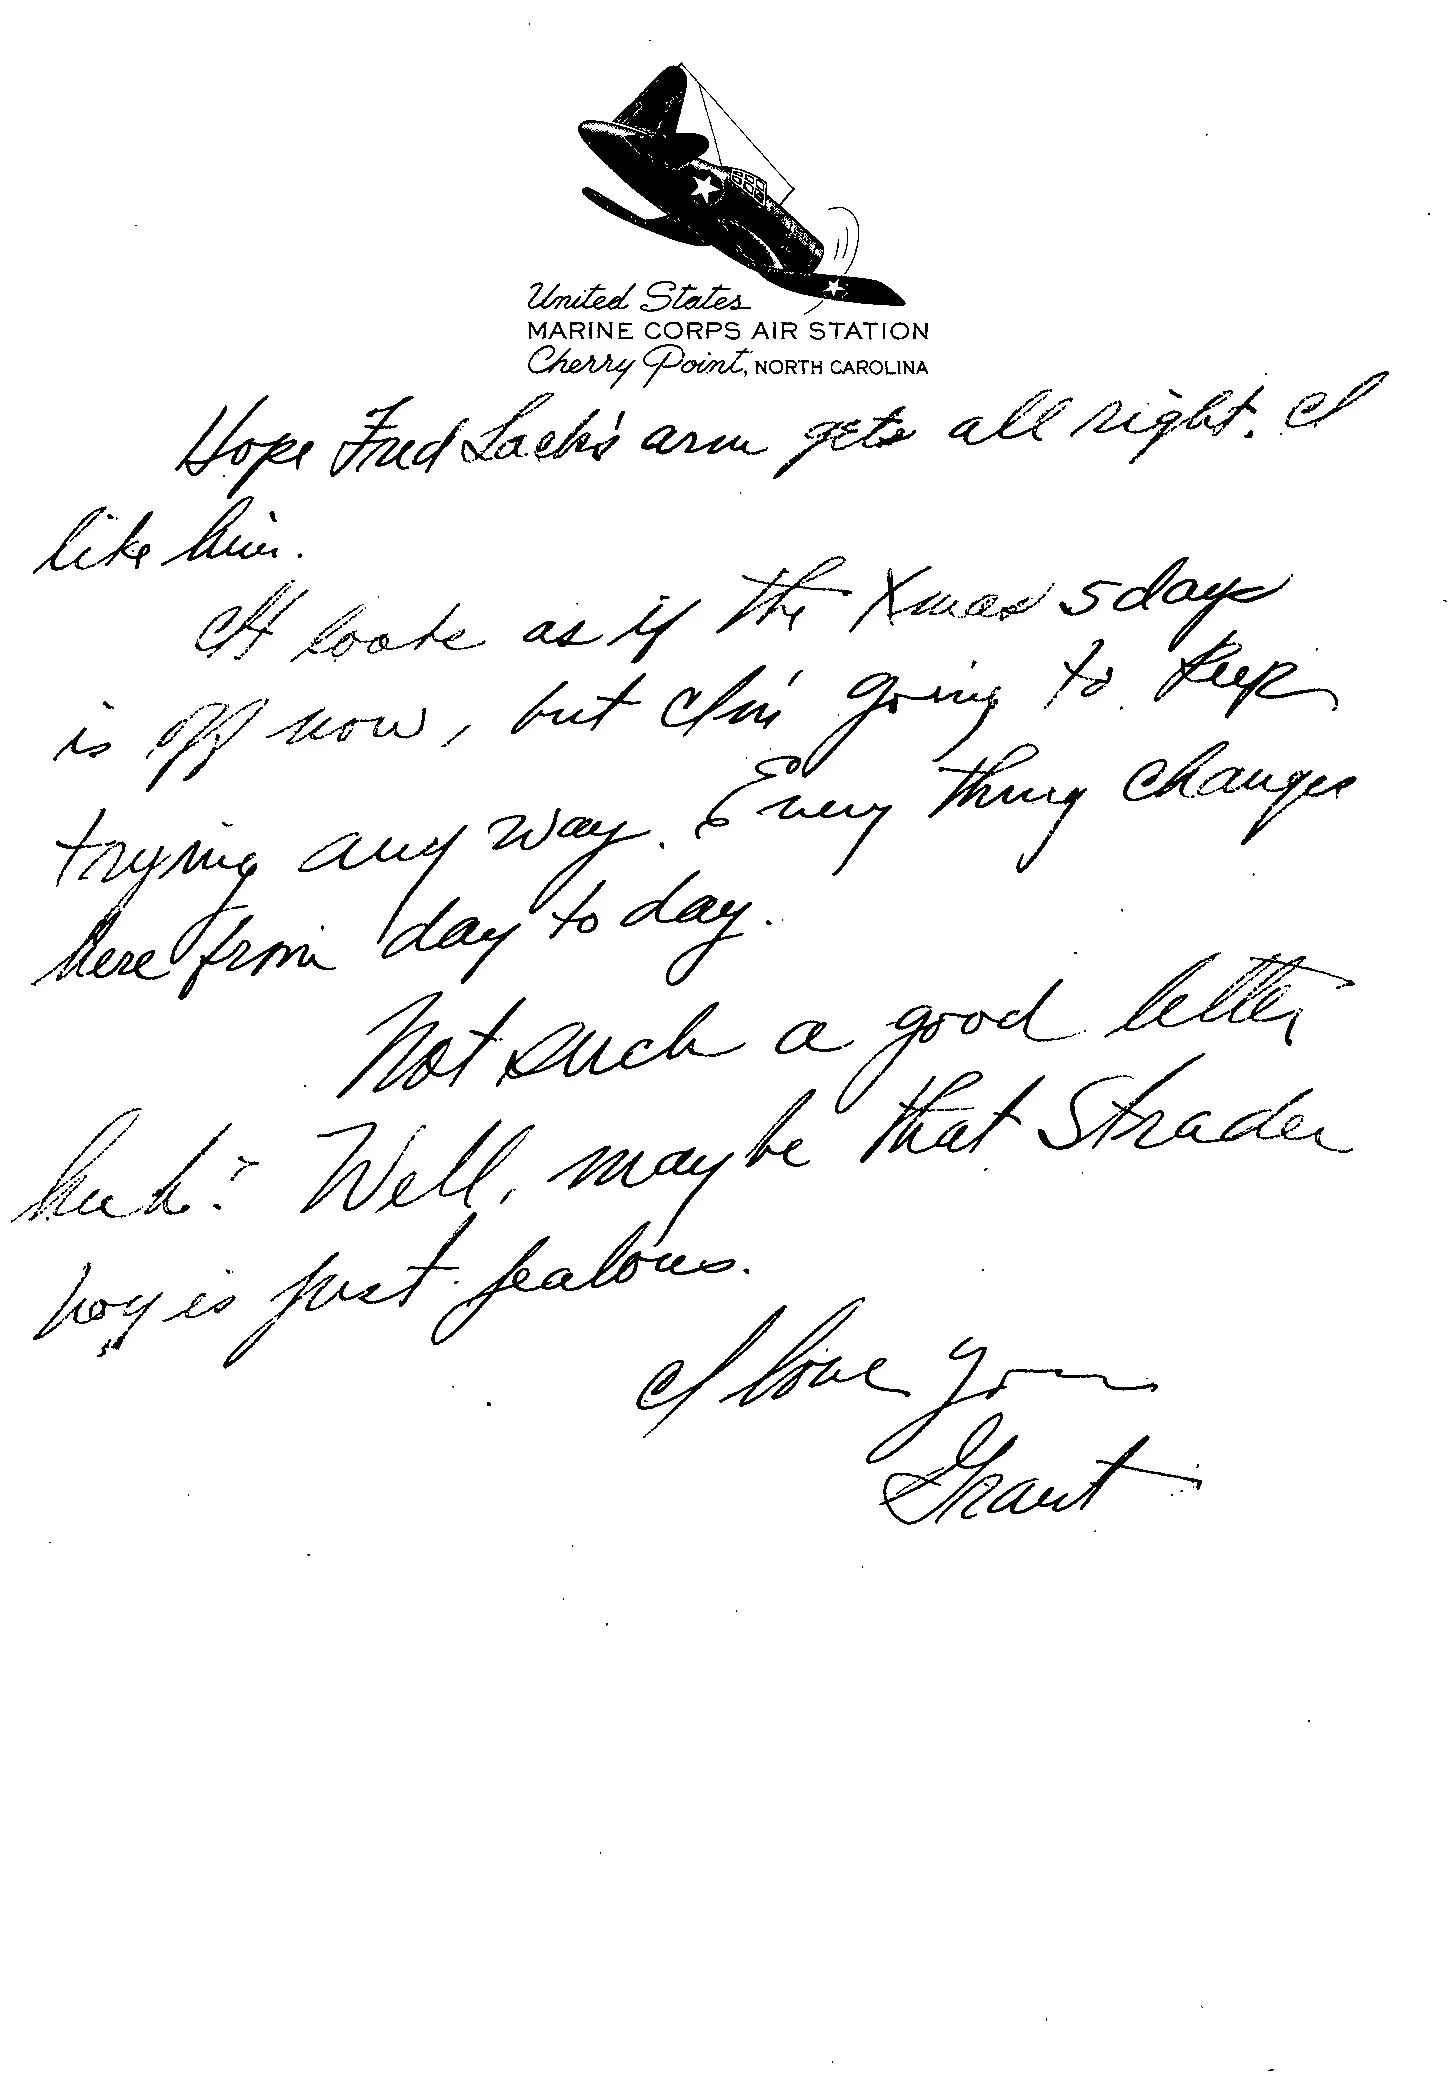 United States
MARINE CORPS AIR STATION
Cherry Point, NORTH CAROLINA
Hope Fred Lack's arm gets all right. I
like him.
It looks as if the Xmas 5 days
is off now, but I'm going to keep
trying any way. Every thing changes
here from day to day.
Not such a good letter
huh? Well, maybe that Strader
boy is just jealous.
I love you
Grant